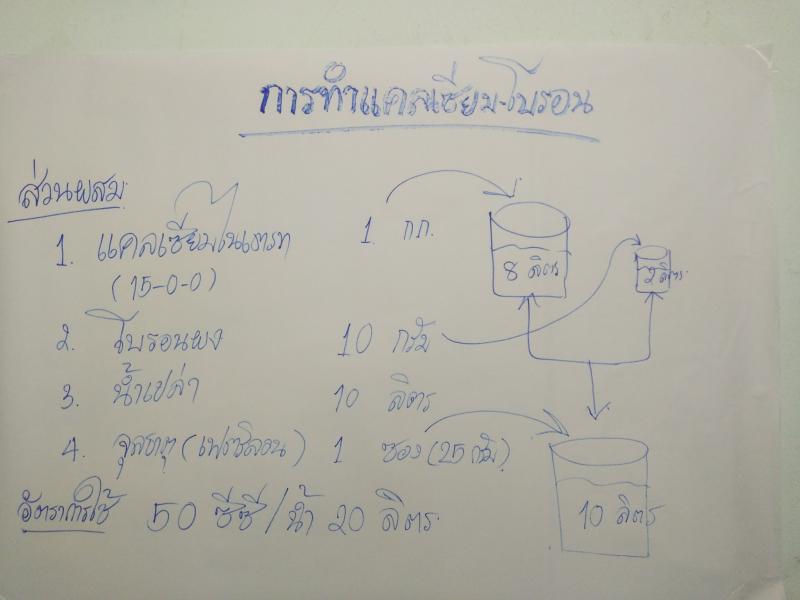 การทำแคลเซียม-โบรอน
ส่วนผสม
1. แคลเซียมไนเตรท 1 กก.
(15-0-0)
8 ลิตร
2 ลิตร
2. โบรอนผง 10 กรัม
3. น้ำเปล่า 10 ลิตร
4. จุลธาตุ (เฟตริลอน) 1 ซอง (25 กรัม)
10 ลิตร
อัตราการใช้ 50 ซีซี/น้ำ 20 ลิตร